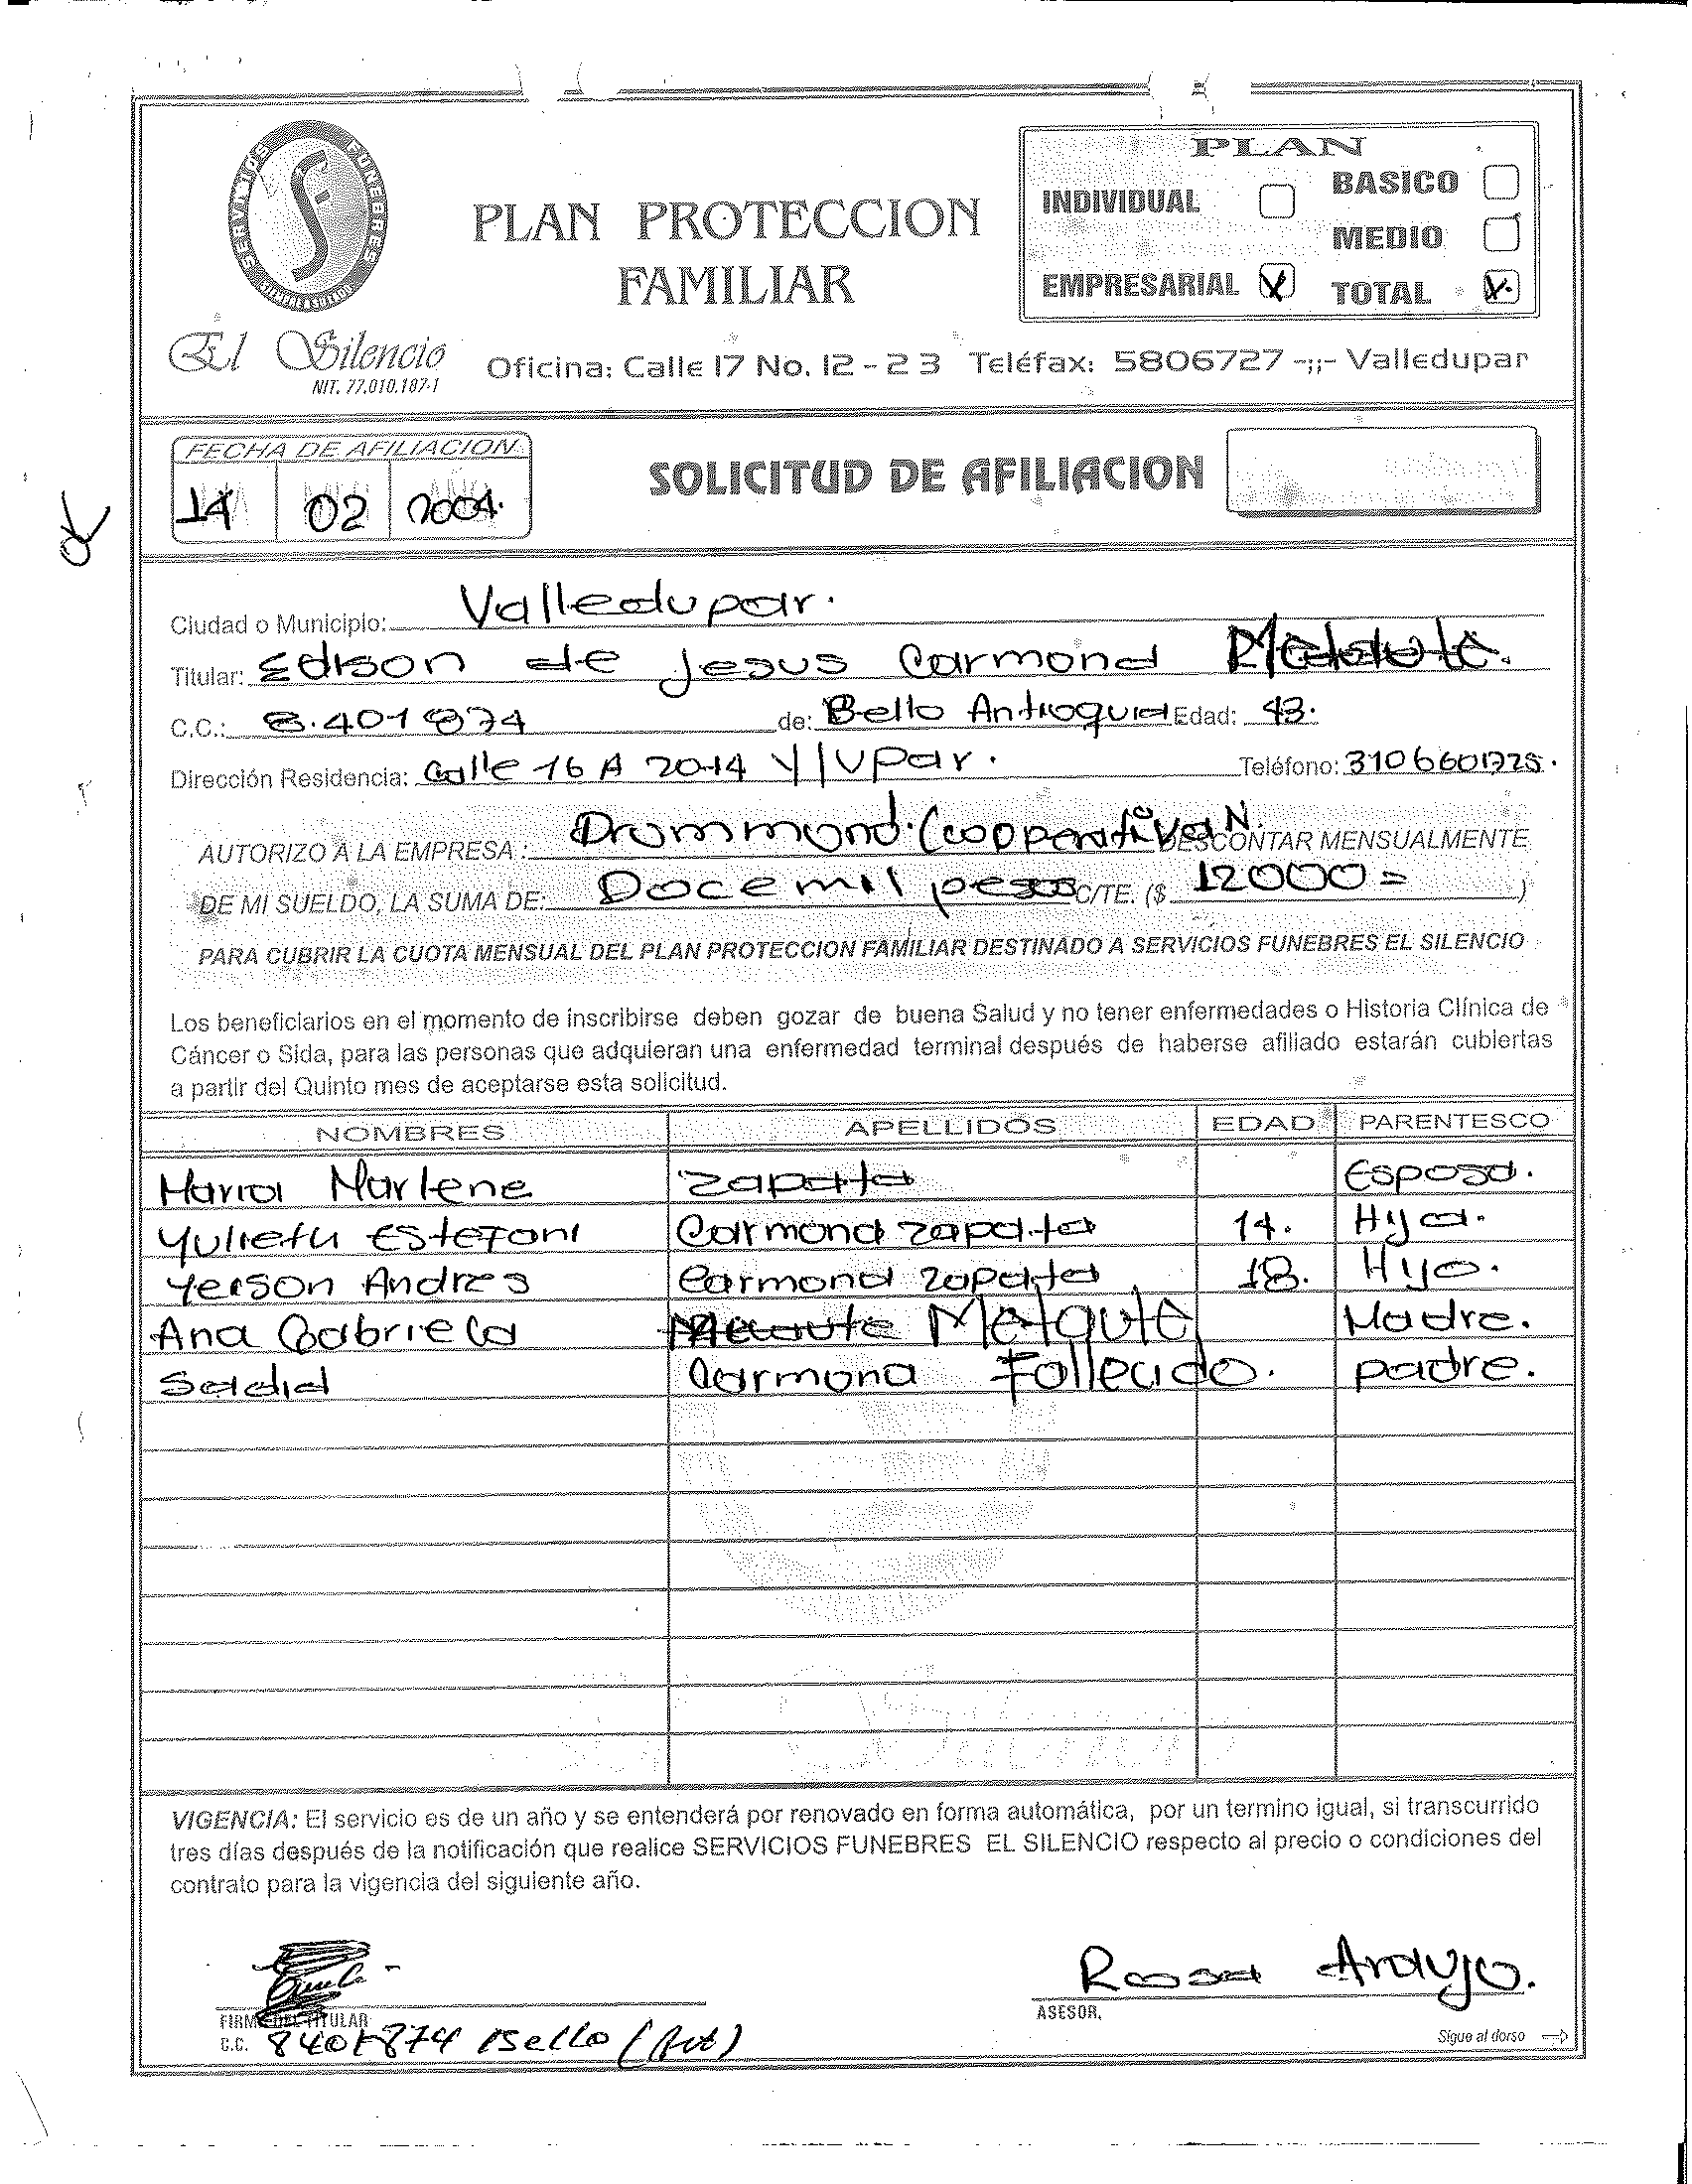 PLAN
SERVICIOS FUNEBRES
INDIVIDUAL BASICO
PLAN PROTECCION
MEDIO
FAMILIAR
EMPRESARIAL X TOTAL X
El Silencio
NIT. 77.010.187-1
Oficina: Calle 17 No. 12 - 23 Teléfax: 5806727 -;;- Valledupar
FECHA DE AFILIACION
14 02 2004.
SOLICITUD DE AFILIACION
OK
Ciudad o Municipio: Valledupar.
Titular: Edison de Jesus Carmona
C.C.: 8.401874 de: Bello Antioquia Edad: 43.
Dirección Residencia: Calle 16 A 20-14 V/Upar. Teléfono: 3106601725.
AUTORIZO A LA EMPRESA: Drummond (Cooperativa N. DESCONTAR MENSUALMENTE
DE MI SUELDO, LA SUMA DE: Doce mil pesos C/TE. ($ 12000= )
PARA CUBRIR LA CUOTA MENSUAL DEL PLAN PROTECCION FAMILIAR DESTINADO A SERVICIOS FUNEBRES EL SILENCIO
Los beneficiarios en el momento de inscribirse deben gozar de buena Salud y no tener enfermedades o Historia Clínica de
Cáncer o Sida, para las personas que adquieran una enfermedad terminal después de haberse afiliado estarán cubiertas
a partir del Quinto mes de aceptarse esta solicitud.
NOMBRES APELLIDOS EDAD PARENTESCO
Maria Marlene Zapata Esposa.
Yulieth Estefani Carmona Zapata 14. Hija.
Yeison Andres Carmona Zapata 18. Hijo.
Ana Gabriela Madre.
Carmona Fallecido. padre.
VIGENCIA: El servicio es de un año y se entenderá por renovado en forma automática, por un termino igual, si transcurrido
tres días después de la notificación que realice SERVICIOS FUNEBRES EL SILENCIO respecto al precio o condiciones del
contrato para la vigencia del siguiente año.
Rosa Araujo.
FIRMA DEL TITULAR
ASESOR,
C.C. 8401874 Bello (Ant)
Sigue al dorso